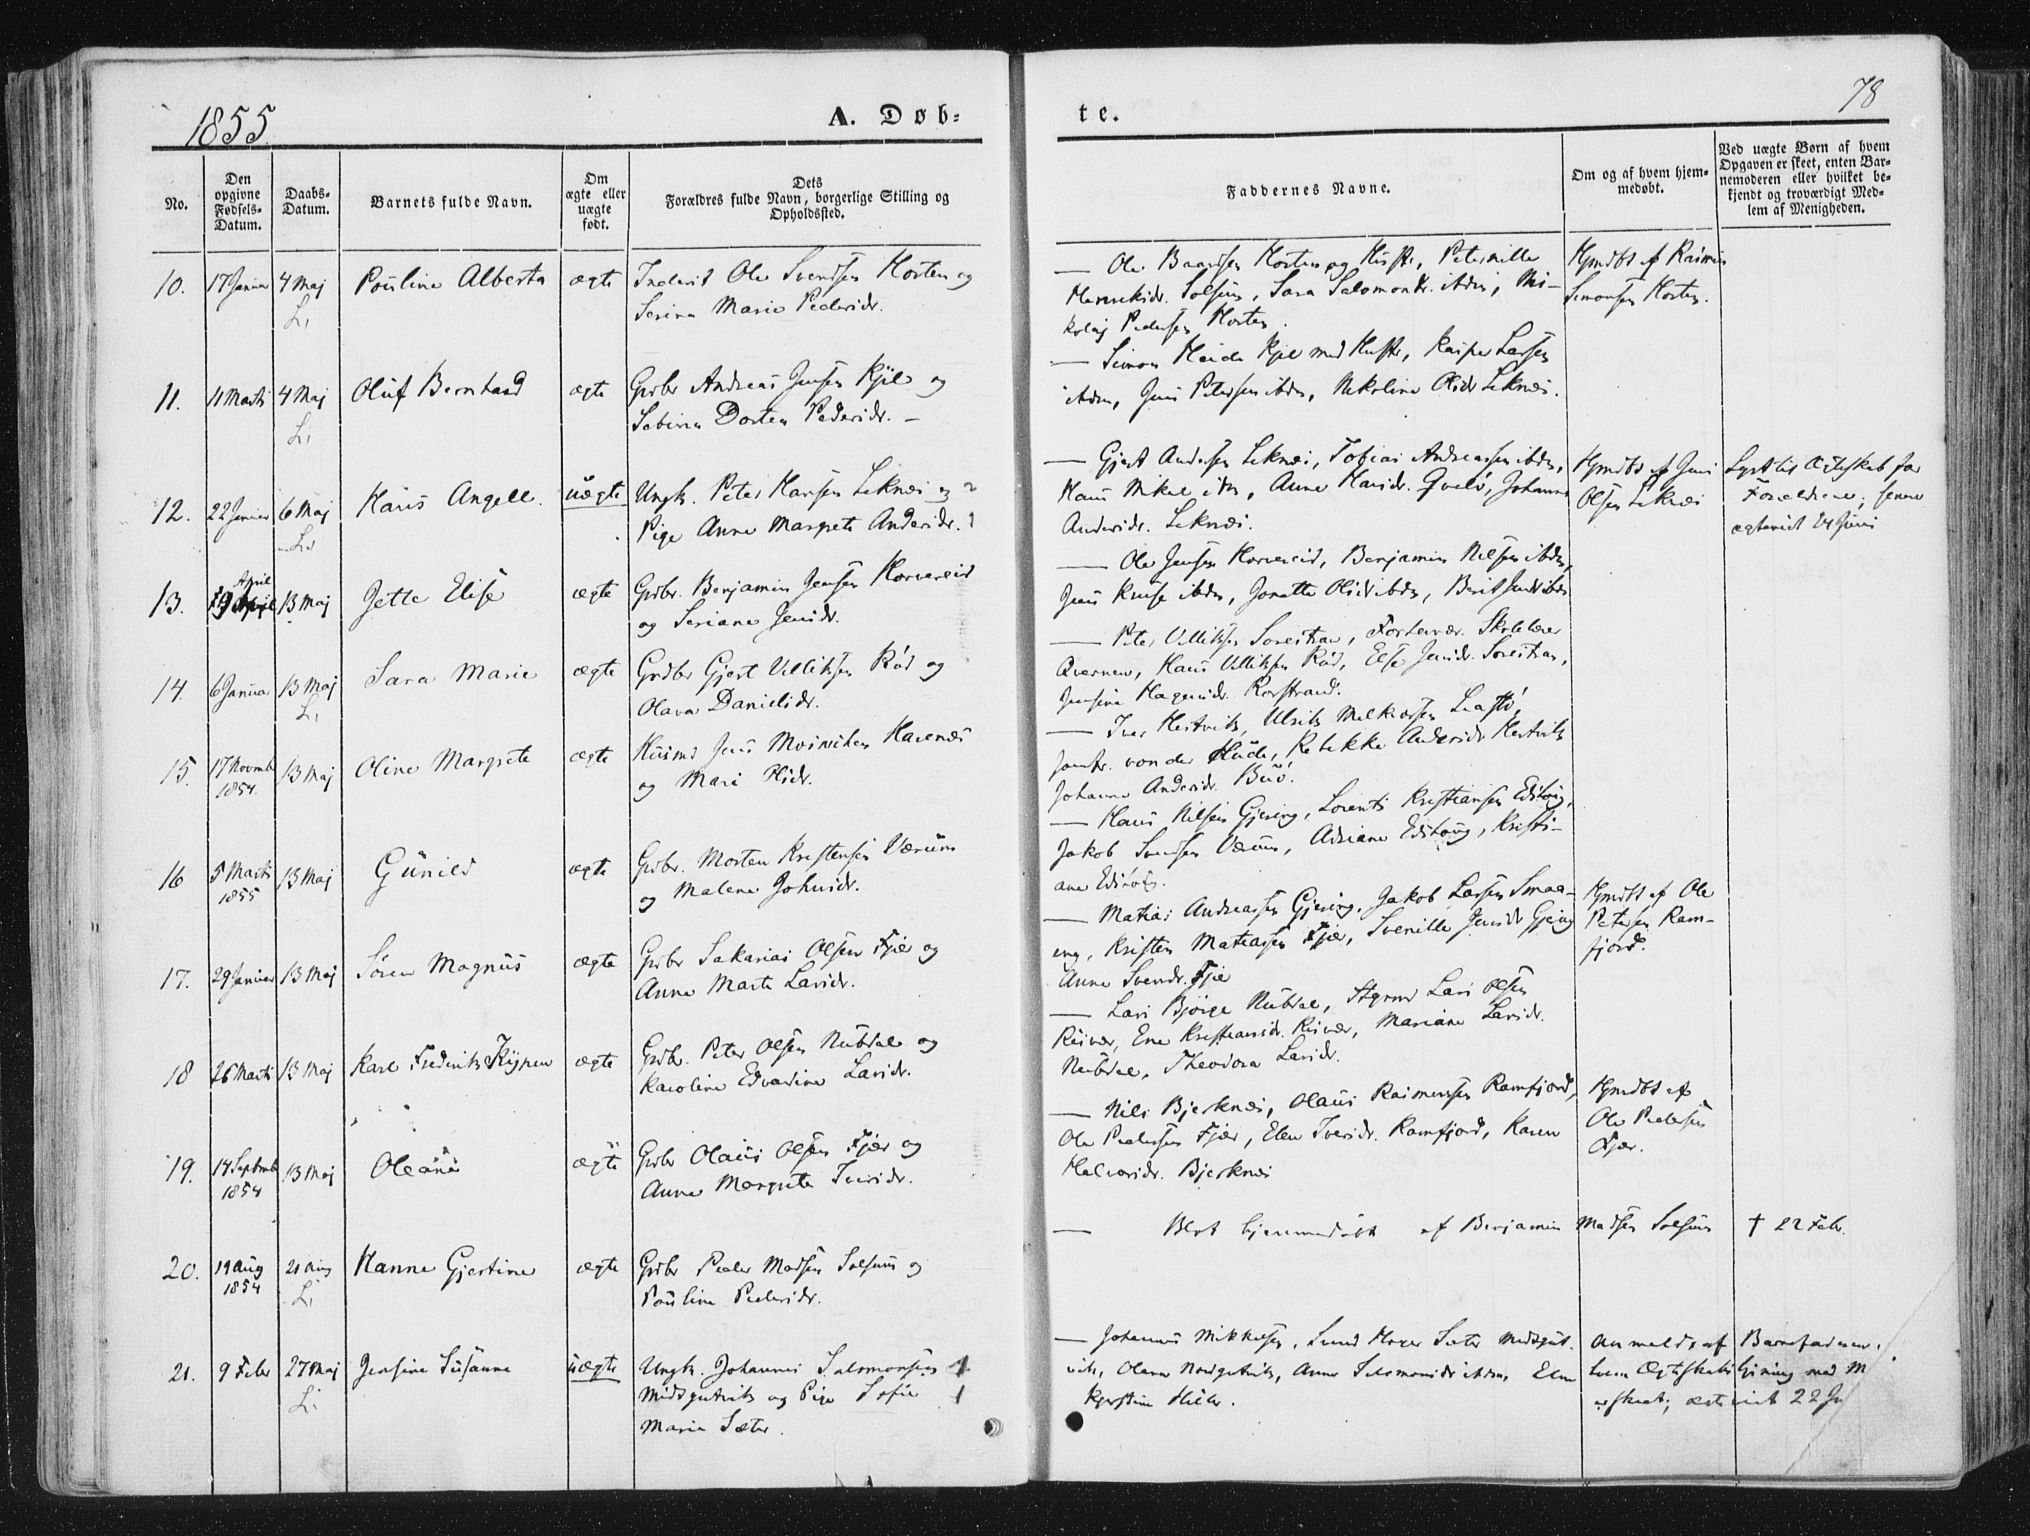 1855.
A. Døb-
te.
78
No.
Den opgivne Fødsels-Datum.
Daabs-Datum.
Barnets fulde Navn.
Om ægte eller uægte født.
Dets Forældres fulde Navn, borgerlige Stilling og Opholdssted.
Faddernes Navne.
Om og af hvem hjem-medøbt.
Ved uægte Børn af hvem
Opgaven er skeet, enten Bar-
nemoderen eller hvilket be-
kjendt og troværdigt Med-
lem af Menigheden.
10. 17 Januar 4 Maj Pouline Alberta ægte Inderst Ole Svendsen Horten og
Serina Marie Pedersdr.
— Ole Baardsen Horten og Hustr, Peternille
Salsnes, Sara Salomonsdr. ibdm, Ni-
kolaj Pedersen Horten.
Hjmdbt af Rasmus
Simonsen Horten.
11. 11 Marts 4 Maj Oluf Bernhard ægte Grdbr Andreas Jensen Kjil og
Sabina Dortea Pedersdr. —
— Simon Kjil med Hustr, Kasper Larsen
ibdm, Jens Petersen ibdm, Nikoline Olsdr Leknæs.
12. 22 Januar 6 Maj Hans Angell. uægte Ungk. Peter Hansen Leknæs og 2
Pige Anne Margrete Andersdr. 1
— Gjert Andersen Leknæs, Tobias Andreassen ibdm,
Hans Mikal ibdm, Anne Hansdr. Johanna
Andersdr. Leknæs.
Hjmdbt af Jens
Olsen Leknæs
Lyst til Ægteskab for
Forældrene; senere
ægteviet 24 Juni
13. 19 April 13 Maj Jette Elise ægte Grdbr. Benjamin Jensen Horvereid
og Seriane Jensdr.
— Ole Jensen Horvereid, Benjamin Nilsen ibdm,
Jens Kruse ibdm, Jonette Olsdr ibdm, Berit Jensdr ibdm
14. 6 Januar 13 Maj Sara Marie ægte Grdbr Gjert Villiksen Rød og
Olava Danielsdr.
— Peter Villiksen Sørestran, Skolelærer
Hans Villiksen Rød, Else Jensdr. Sørestran,
Jensine Hagensdr. Korstrand.
15. 17 Novemb 1854 13 Maj Oline Margrete ægte Husmd Jens Havenæs
og Mari Olsdr.
— Iver Hestvik, Ulrik Melkiorsen
Jomfr. von der Hude, Rebekka Andersdr Hestvik
Johanna Andersdr.
16 5 Marts 1855 13 Maj Gunild ægte Grdbr. Morten Kristensen Værum
og Malene Johnsdr.
— Hans Nilsen Gjering, Lorents Kristiansen
Jakob Svendsen Værum, Adriane Kristi-
ane
17. 29 Januar 13 Maj Søren Magnus ægte Grdbr Sakarias Olsen Fjær og
Anne Marta Larsdr.
— Matias Andreassen Gjering, Jakob Larsen Smaa-
eng, Kristen Mateassen Fjær, Svenille Jensdr Gjering
Anne Svendsdr. Fjær
Hjmdbt af Ole
Petersen Ram-
fjord.
18 26 Marts 13 Maj Karl Fredrik ægte Grdbr. Peter Olsen Nubdal og
Karoline Edvardine Larsdr.
— Lars Bjørge Nubdal, Lars Olsen
Risvær, Ene Kristiansdr. Risvær, Mariane Larsdr.
Nubdal, Theodora Larsdr.
19. 14 Septemb 1854 13 Maj Oleana ægte Grdbr Olaus Olsen Fjær og
Anne Margrete Iversdr.
— Nils Bjerknæs, Olaus Rasmussen Ramfjord,
Ole Pedersen Fjær, Elen Iversdr. Ramfjord, Karen
Halvorsdr. Bjerknæs
Hjmdbt af
Ole Pedersen
Fjær.
20. 19 Aug 1854 21 Aug Hanne Gjertine ægte Grdbr Peder Madsen Salsnes og
Pouline Pedersdr.
— Blot hjemmedøbt af Benjamin Madsen Salsnes † 22 Febr.
21. 9 Feber 27 Maj Jensine Susanna uægte Ungk. Johannes Salomonsen 1
Midsgutvik og Pige Sofie 1
Marie Sæter.
— Johannes Mikkelsen, Sæter Midsgut-
vik, Olava Nordgutvik, Anne Salomonsdr ibdm,
Anmeldt af Barnefaderen.
Ægteskabs lysning med M
er skeet; ægteviet 22 Ju